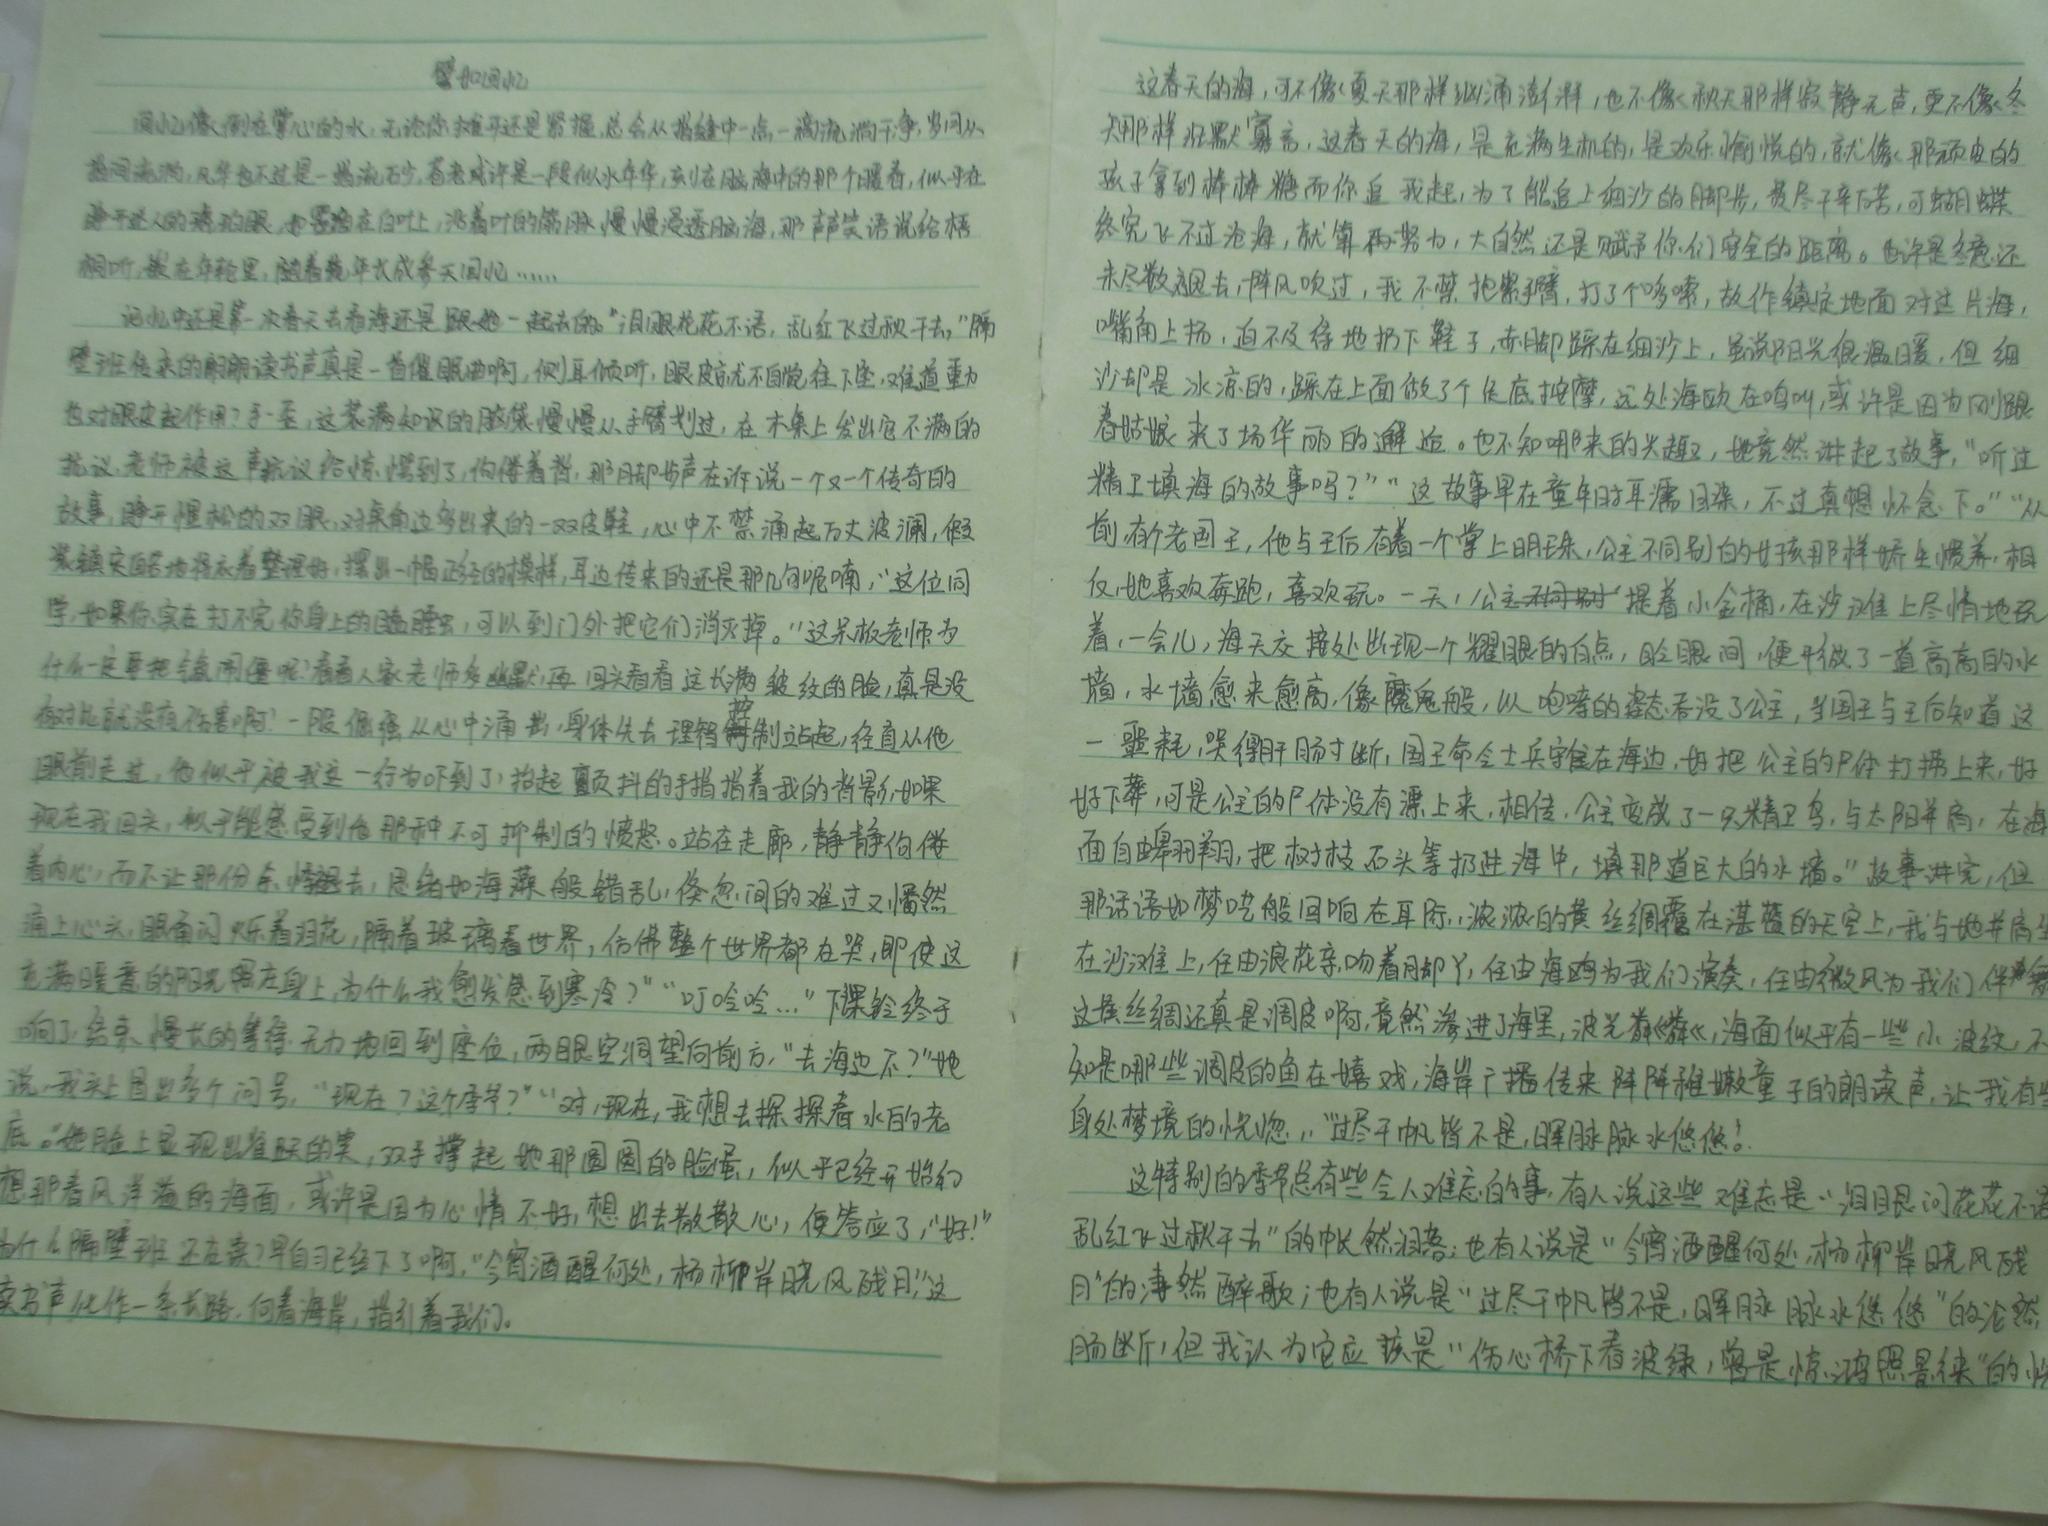 譬如回忆
回忆像倒在掌心的水，无论你摊开还是紧握，总会从指缝中一点一滴流淌干净，岁月从
指间流淌，风华也不过是一指流沙，苍老或许是一段似水年华，刻在脑海中的那个暖春，似乎在
睁开迷人的琥珀眼，也零落在白叶上，沿着叶的筋脉慢慢浸透脑海，那声声笑语说给梧
桐听，嵌在年轮里，随着 年长成参天回忆……
记忆中还是第一次春天去看海还是跟她一起去的。“泪眼花花不语，乱红飞过秋千去。”隔
壁班传来的朗朗读书声真是一首催眠曲啊，侧耳倾听，眼皮就不自觉往下坠，难道重力
也对眼皮起作用？手一歪，这装满知识的脑袋慢慢从手臂划过，在木桌上发出它不满的
抗议，老师被这声抗议给惊愕到了，佝偻着背，那月却步声在诉说一个又一个传奇的
故事，睁开惺松的双眼，对桌角边多出来的一双皮鞋，心中不禁涌起万丈波澜，假
装镇定自若地将衣着整理好，摆出一幅正经的模样，耳边传来的还是那几句呢喃，“这位同
学，如果你实在打不完你身上的瞌睡虫，可以到门外把它们消灭掉。”这呆板老师为
什么一定要把气氛闹僵呢？看看人家老师多幽默，再回头看看这长满皱纹的脸，真是没
有对比就没有伤害啊？一股倔强从心中涌出，身体失去理智控制站起，经直从他
眼前走过，他似乎被我这一行为吓到了，抬起颤抖的手指指着我的背影，如果
现在我回头，似乎能感受到他那种不可抑制的愤怒。站在走廊，静静佝偻
着内心，而不让那份余悸褪去，思绪如海藻般错乱，倏忽间的难过又幡然
涌上心头，眼角闪烁着泪花，隔着玻璃看世界，仿佛整个世界都在哭，即使这
充满暖意的阳光照在身上，为什么我愈发感到寒冷？”“叮呤呤…”下课铃终于
响了，结束慢长的等待，无力地回到座位，两眼空洞望向前方，“去海边不？”她
说，我头上冒出多个问号，“现在？这个季节？”“对，现在，我想去探探春水的老
底。”她脸上显现出灿烂的笑，双手撑起她那圆圆的脸蛋，似乎已经开始幻
想那春风洋溢的海面，或许是因为心情不好，想出去散散心，便答应了，“好！”
为什么隔壁班还在读？早自习已经下了啊，“今宵酒醒何处，杨柳岸晓风残月，”这
读书声化作一条长路，向着海岸，指引着我们。
这春天的海，可不像夏天那样汹涌澎湃，也不像秋天那样寂静无声，更不像冬
天那样沉默寡言，这春天的海，是充满生机的，是欢乐愉悦的，就像那顽皮的
孩子拿到棒棒糖而你追我起，为了能追上细沙的脚步，费尽千辛万苦，可蝴蝶
终究飞不过沧海，就算再努力，大自然还是赋予你们安全的距离。也许是冬意还
未尽数退去，阵风吹过，我不禁抱紧手臂，打了个哆嗦，故作镇定地面对这片海，
嘴角上扬，迫不及待地扔下鞋子，赤脚踩在细沙上，虽说阳光很温暖，但细
沙却是冰凉的，踩在上面做了个足底按摩，远处海欧在鸣叫，或许是因为刚跟
春姑娘来了场华丽的邂逅。也不知哪来的兴趣，她竟然讲起了故事，“听过
精卫填海的故事吗？”“这故事早在童年时耳濡目染，不过真想怀念下。”“从
前，有个老国王，他与王后有着一个掌上明珠，公主不同别的女孩那样娇生惯养，相
反，她喜欢奔跑，喜欢玩。一天，公主提着小金桶，在沙滩上尽情地玩
着，一会儿，海天交接处出现一个耀眼的白点，眨眼间，便形做了一道高高的水
墙，水墙愈来愈高，像魔鬼般，以咆哮的姿态吞没了公主，当国王与王后知道这
一噩耗，哭得肝肠寸断，国王命令士兵守候在海边，好把公主的尸体打捞上来，好
好下葬，可是公主的尸体没有漂上来，相传，公主变成了一只精卫鸟，与太阳并肩，在海
面自由翱翔，把树枝石头等扔进海中，填那道巨大的水墙。”故事讲完，但
那话语如梦呓般回响在耳际，浓浓的黄丝绸覆在湛蓝的天空上，我与她并肩坐
在沙滩上，任由浪花亲吻着脚丫，任由海鸥为我们演奏，任由微风为我们伴舞
这黄丝绸还真是调皮啊，竟然渗进了海里，波光粼粼，海面似乎有一些小波纹，不
知是哪些调皮的鱼在嬉戏，海岸广播传来阵阵稚嫩童子的朗读声，让我有些
身处梦境的恍惚，“过尽千帆皆不是，晖脉脉水悠悠！
这特别的季节总有些令人难忘的事，有人说这些难忘是“泪眼问花花不语
乱红飞过秋千去”的怅然泪落；也有人说是“今宵酒醒何处，杨柳岸晓风残
月”的凄然醉歌；也有人说是“过尽千帆皆不是，晖脉脉水悠悠”的沦然
肠断，但我认为它应该是“伤心桥下春波绿，曾是惊鸿照影徕”的